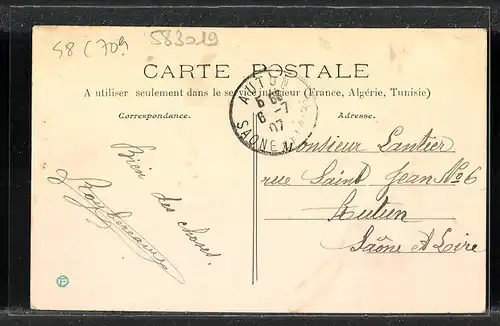 58 (709
583019
CARTE POSTALE
A utiliser seulement dans le service intérieur (France, Algérie, Tunisie)
Correspondance.
Adresse.
AUTUN
6 7
07
SAONE
Bien des choses.
Monsieur Lantier
rue Saint Jean No 6
Autun
Saône et Loire